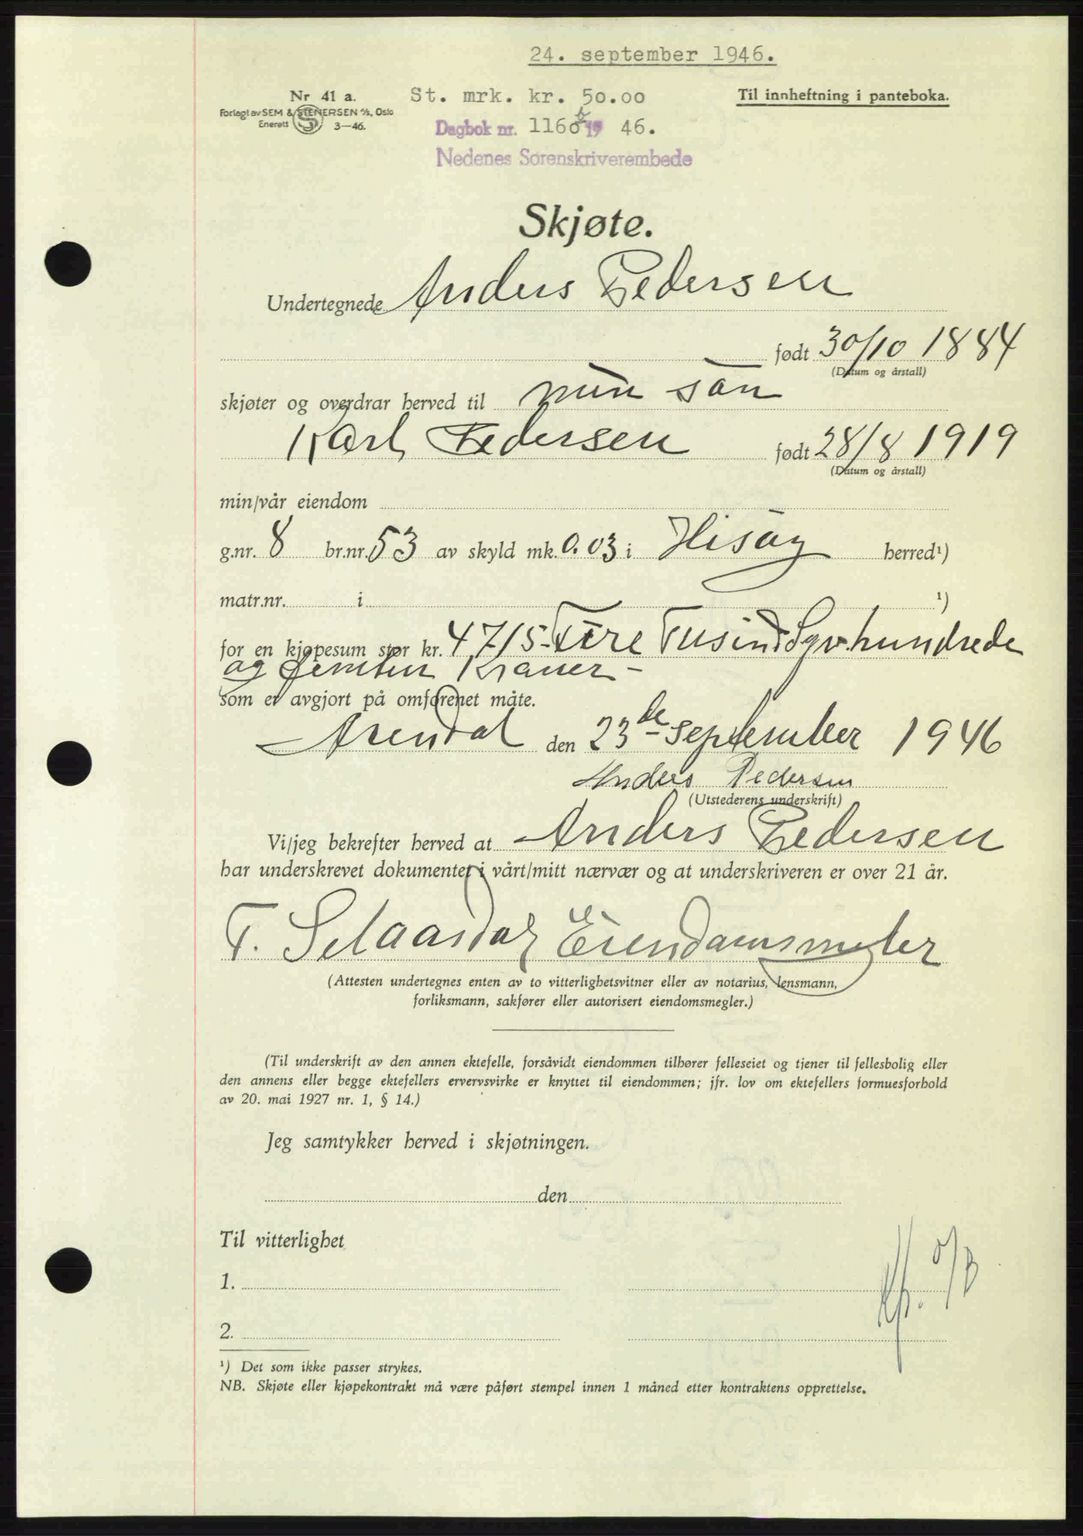 24. september 1946.
Nr 41 a.
St. mrk. kr. 50.00
Til innheftning i panteboka.
Forlagt av SEM & STENERSEN A/S, Oslo
Enerett 3—46.
Dagbok nr. 1160 19 46.
Nedenes Sorenskriverembede
Skjøte.
Undertegnede Anders Pedersen
født 30/10 1884
(Datum og årstall)
skjøter og overdrar herved til min sön
Karl Pedersen født 28/8 1919
(Datum og årstall)
min/vår eiendom
g.nr. 8 br.nr. 53 av skyld mk. 0.03 i Hisöy herred¹)
matr.nr. i ¹)
for en kjøpesum stor kr. 4715- Fire Tusind Syv hundrede
og femten Kroner –
som er avgjort på omforenet måte.
Arendal den 23de september 1946
Anders Pedersen
(Utstederens underskrift)
Vi/jeg bekrefter herved at Anders Pedersen
har underskrevet dokumentet i vårt/mitt nærvær og at underskriveren er over 21 år.
T. Eiendomsmegler
(Attesten undertegnes enten av to vitterlighetsvitner eller av notarius, lensmann,
forliksmann, sakfører eller autorisert eiendomsmegler.)
(Til underskrift av den annen ektefelle, forsåvidt eiendommen tilhører felleseiet og tjener til fellesbolig eller
den annens eller begge ektefellers ervervsvirke er knyttet til eiendommen; jfr. lov om ektefellers formuesforhold
av 20. mai 1927 nr. 1, § 14.)
Jeg samtykker herved i skjøtningen.
den
Til vitterlighet
1.
2.
¹) Det som ikke passer strykes.
NB. Skjøte eller kjøpekontrakt må være påført stempel innen 1 måned etter kontraktens opprettelse.